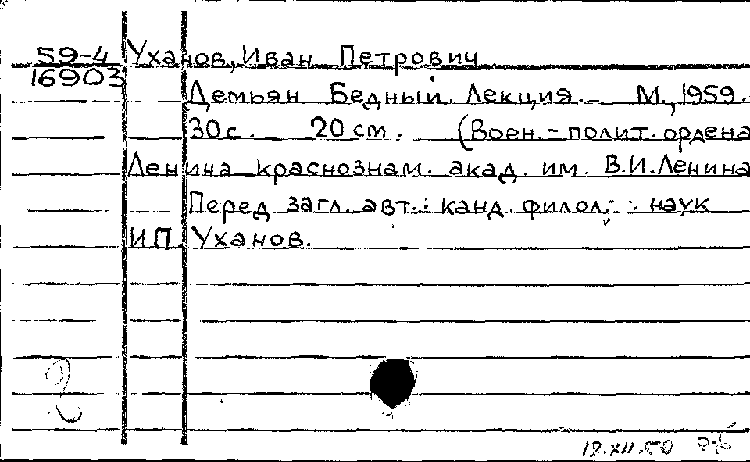 59-4
16903
Уханов, Иван Петрович
Демьян Бедный. Лекция. - М., 1959.
30 с. 20 см. (Воен.-полит. ордена
Ленина краснознам. акад. им. В.И.Ленина
Перед загл. авт.: канд. филол. наук
И.П. Уханов.